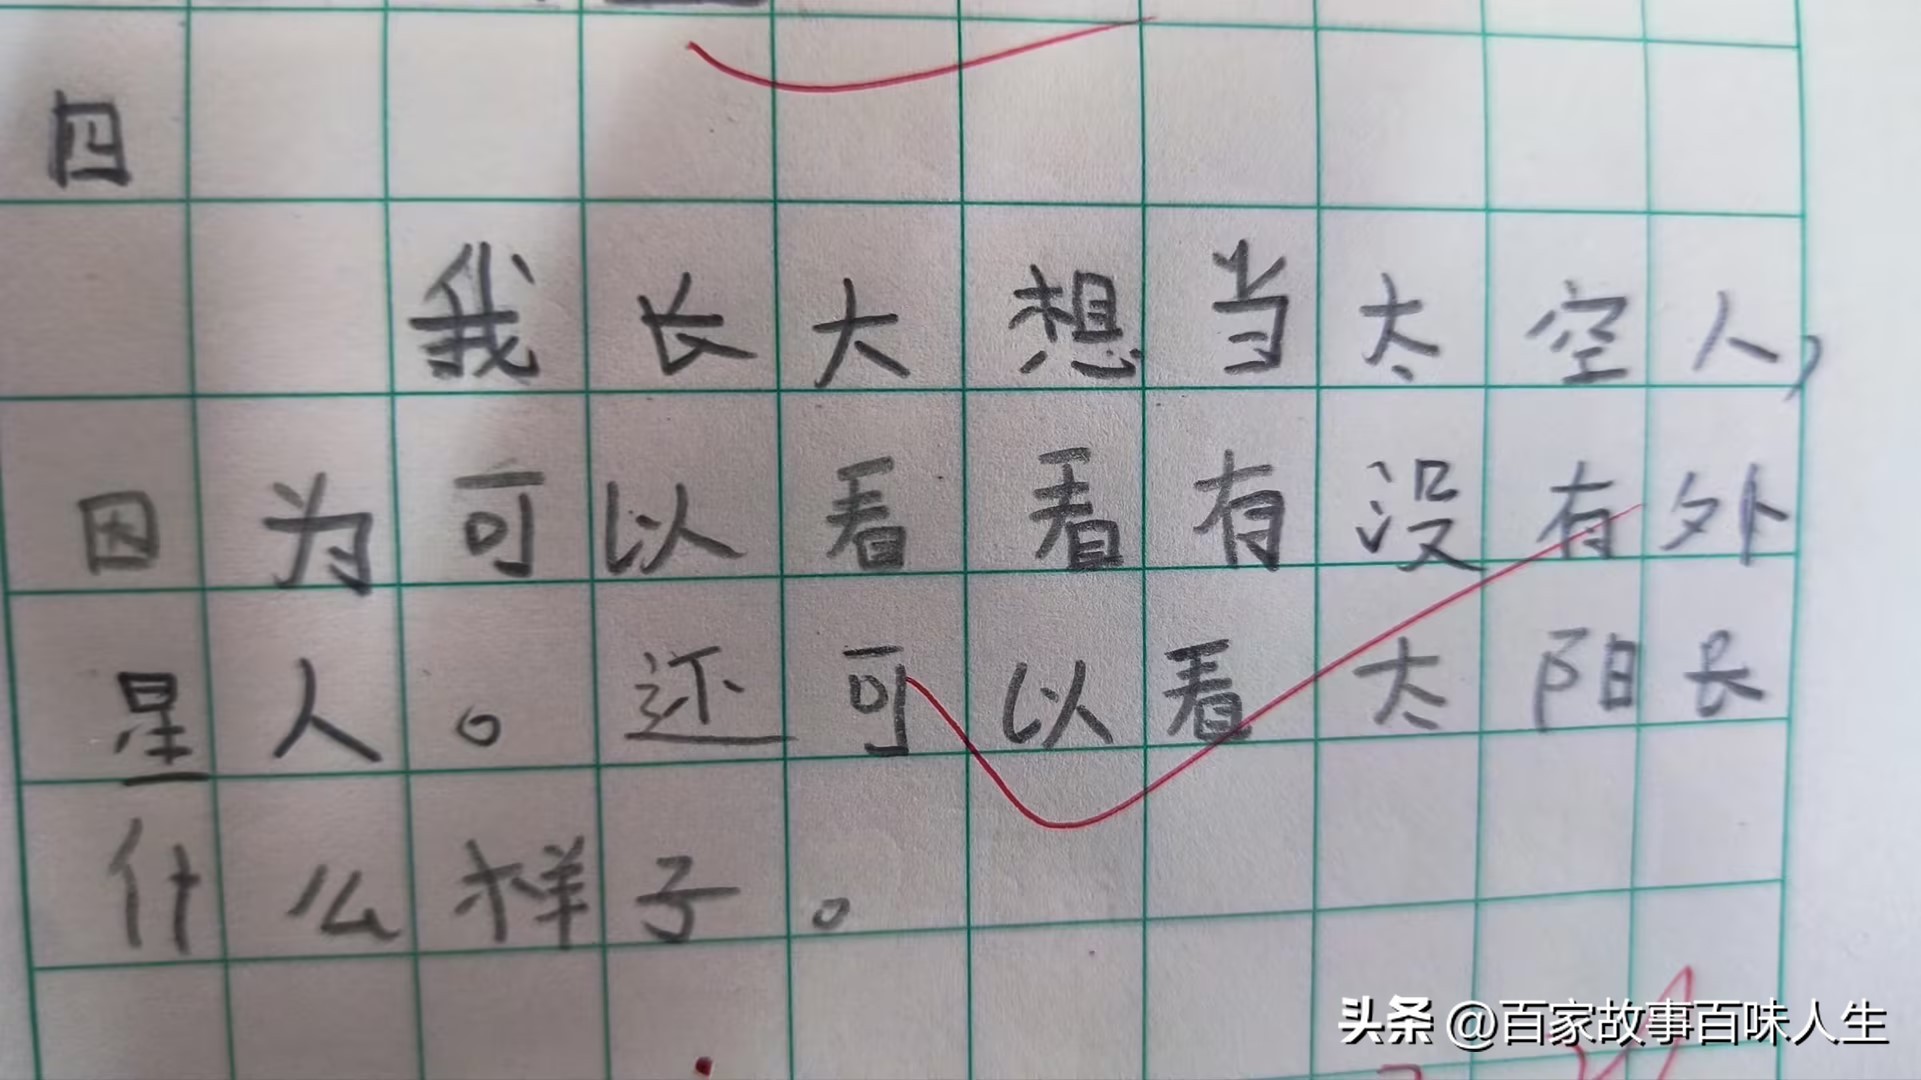 四
我长大想当太空人,
因为可以看看有没有外
星人。还可以看太阳长
什么样子。
头条 @百家故事百味人生